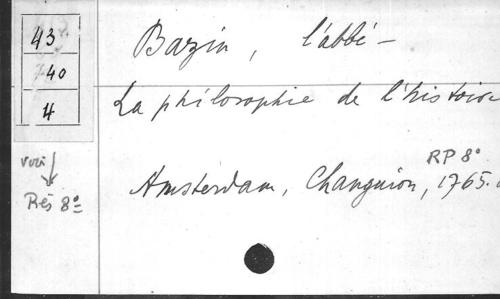 43
40
4
voir
Rés 8º
Bazin, l'abbé –
La philosophie de l'histoire
RP 8º
Amsterdam, Changuion, 1765.